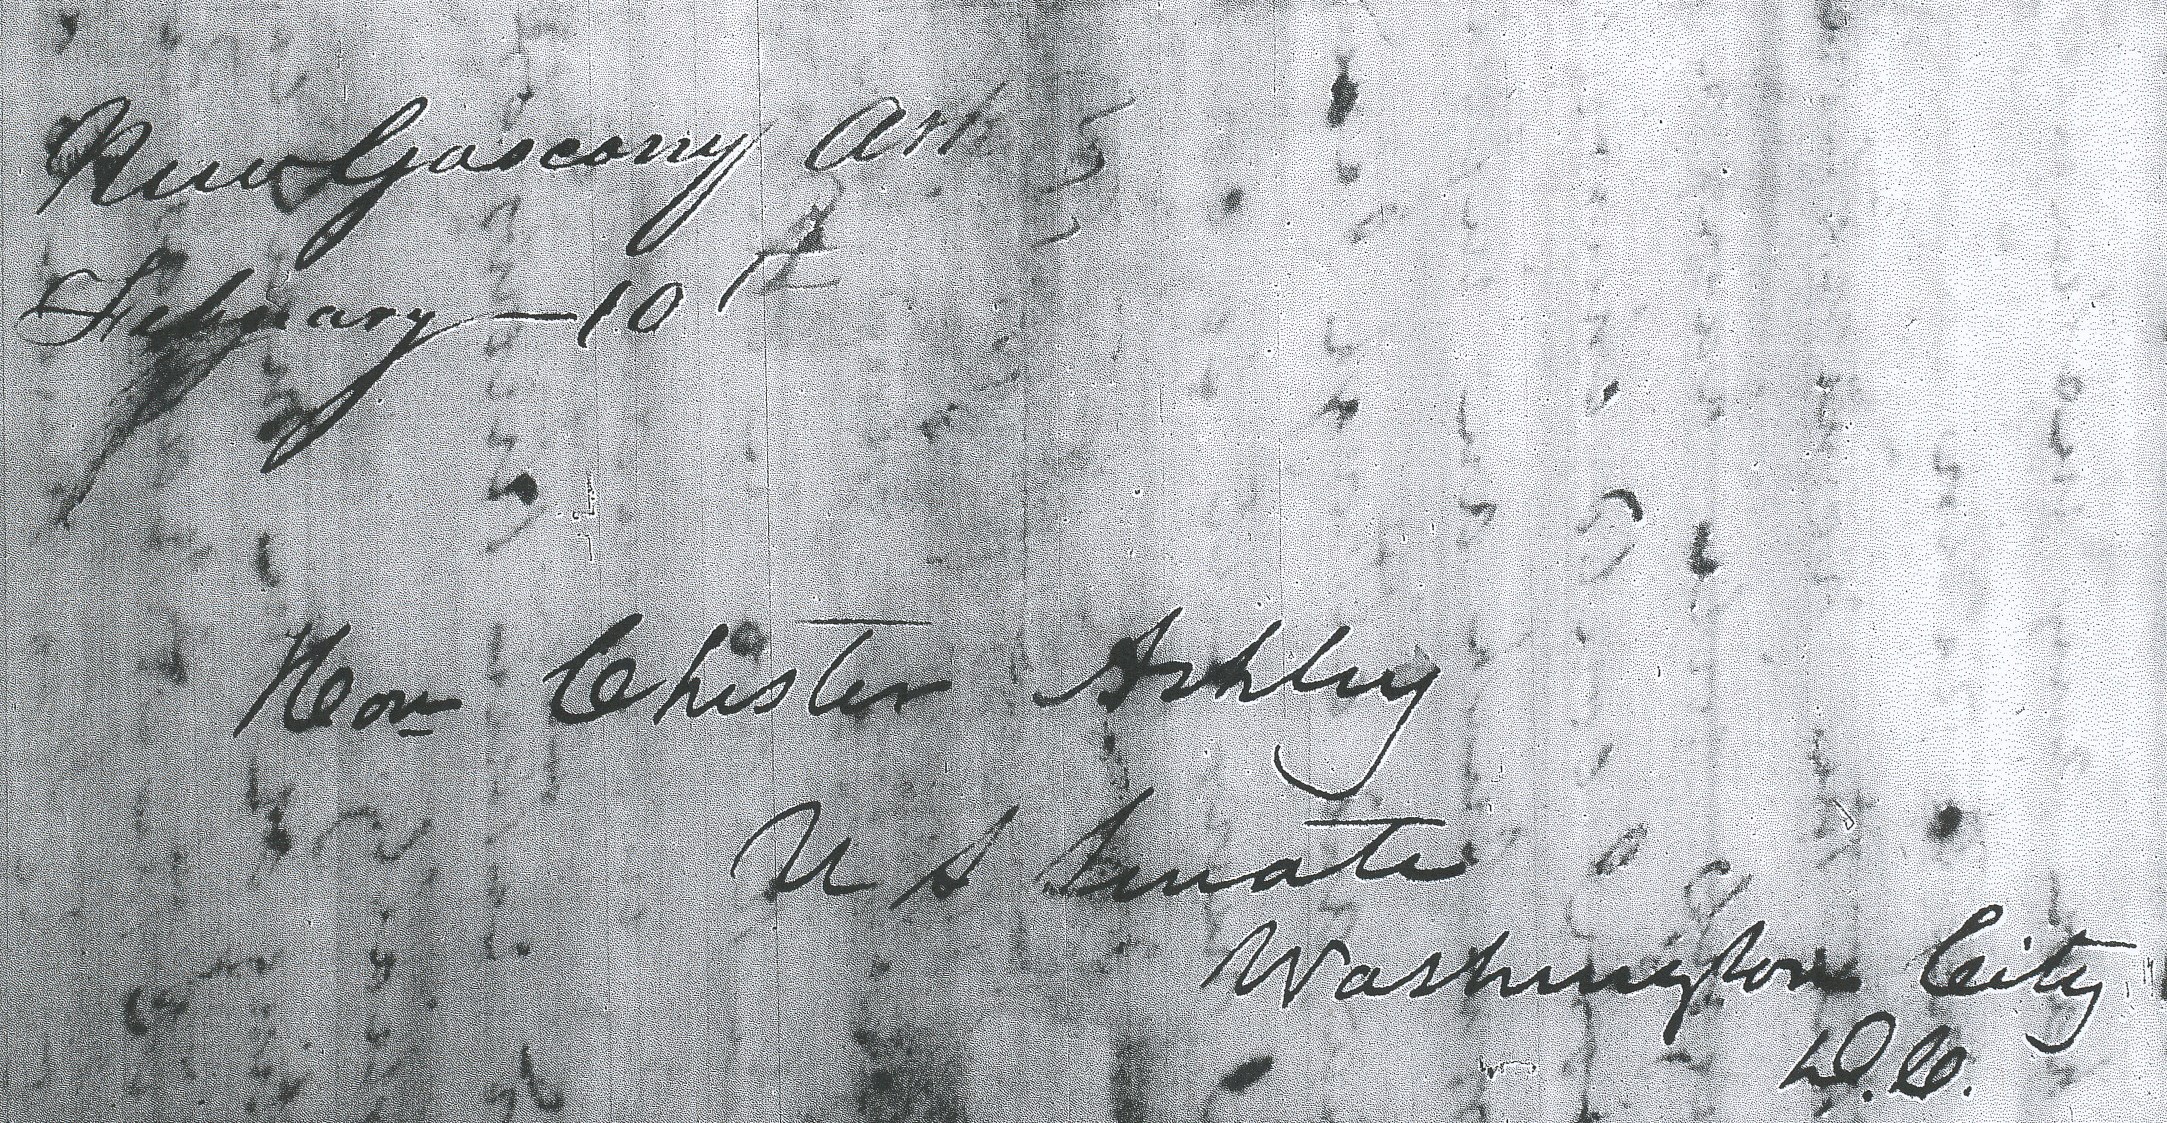 New Gascony Ark
February — 10
5
Hon Chester Ashley
U S Senate
Washington City
D.C.